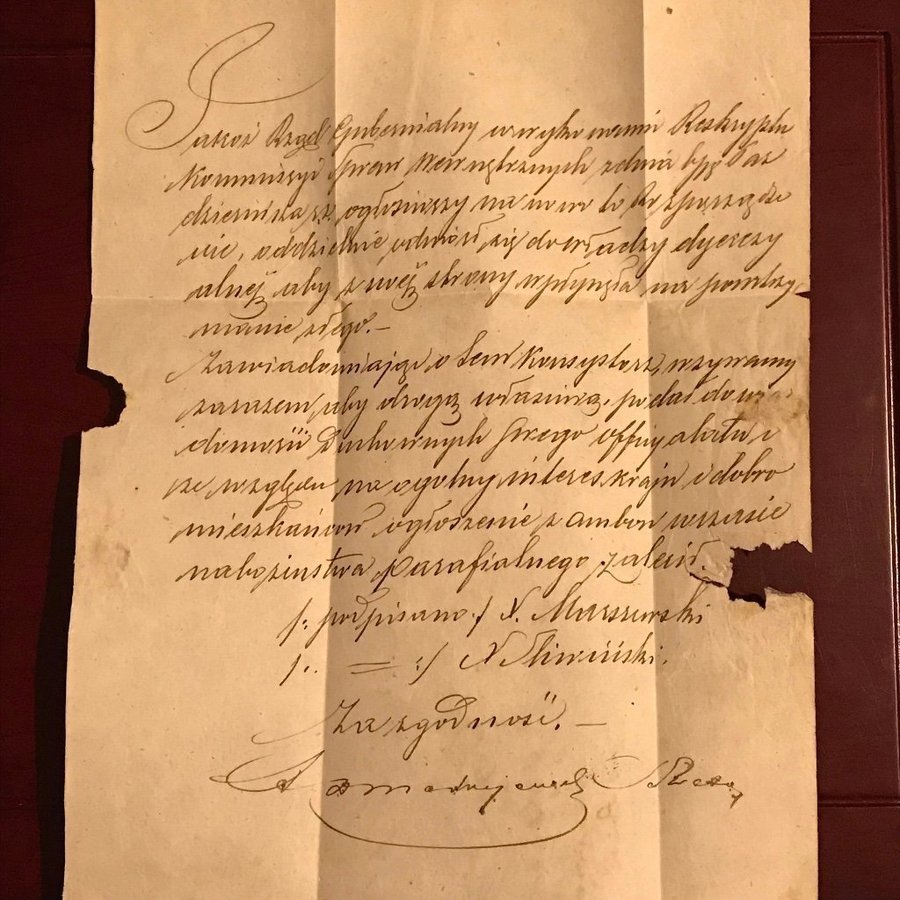 Jakoż Rząd Gubernialny w wykonaniu Reskryptu
Kommissyi Spraw Wewnętrznych z dnia
ogłosiwszy na nowo to Rozporządze
nie, oddzielnie odniósł się do władzy dyecezy
alnéj aby z swéj strony wpłynęła na powstrzy
manie złego.—
Zawiadomiając o tem Konsystorz, wzywamy
zarazem, aby drogą właściwą, podał do wia
domości Duchownych swego offycyalatu i
ze względu na ogólny interes kraju i dobro
mieszkańców ogłoszenie z ambon w czasie
nabożeństwa parafialnego zalecił.
/: podpisano :/ N. Muszewski
/: = :/ N Śliwiński.
Za zgodność.—